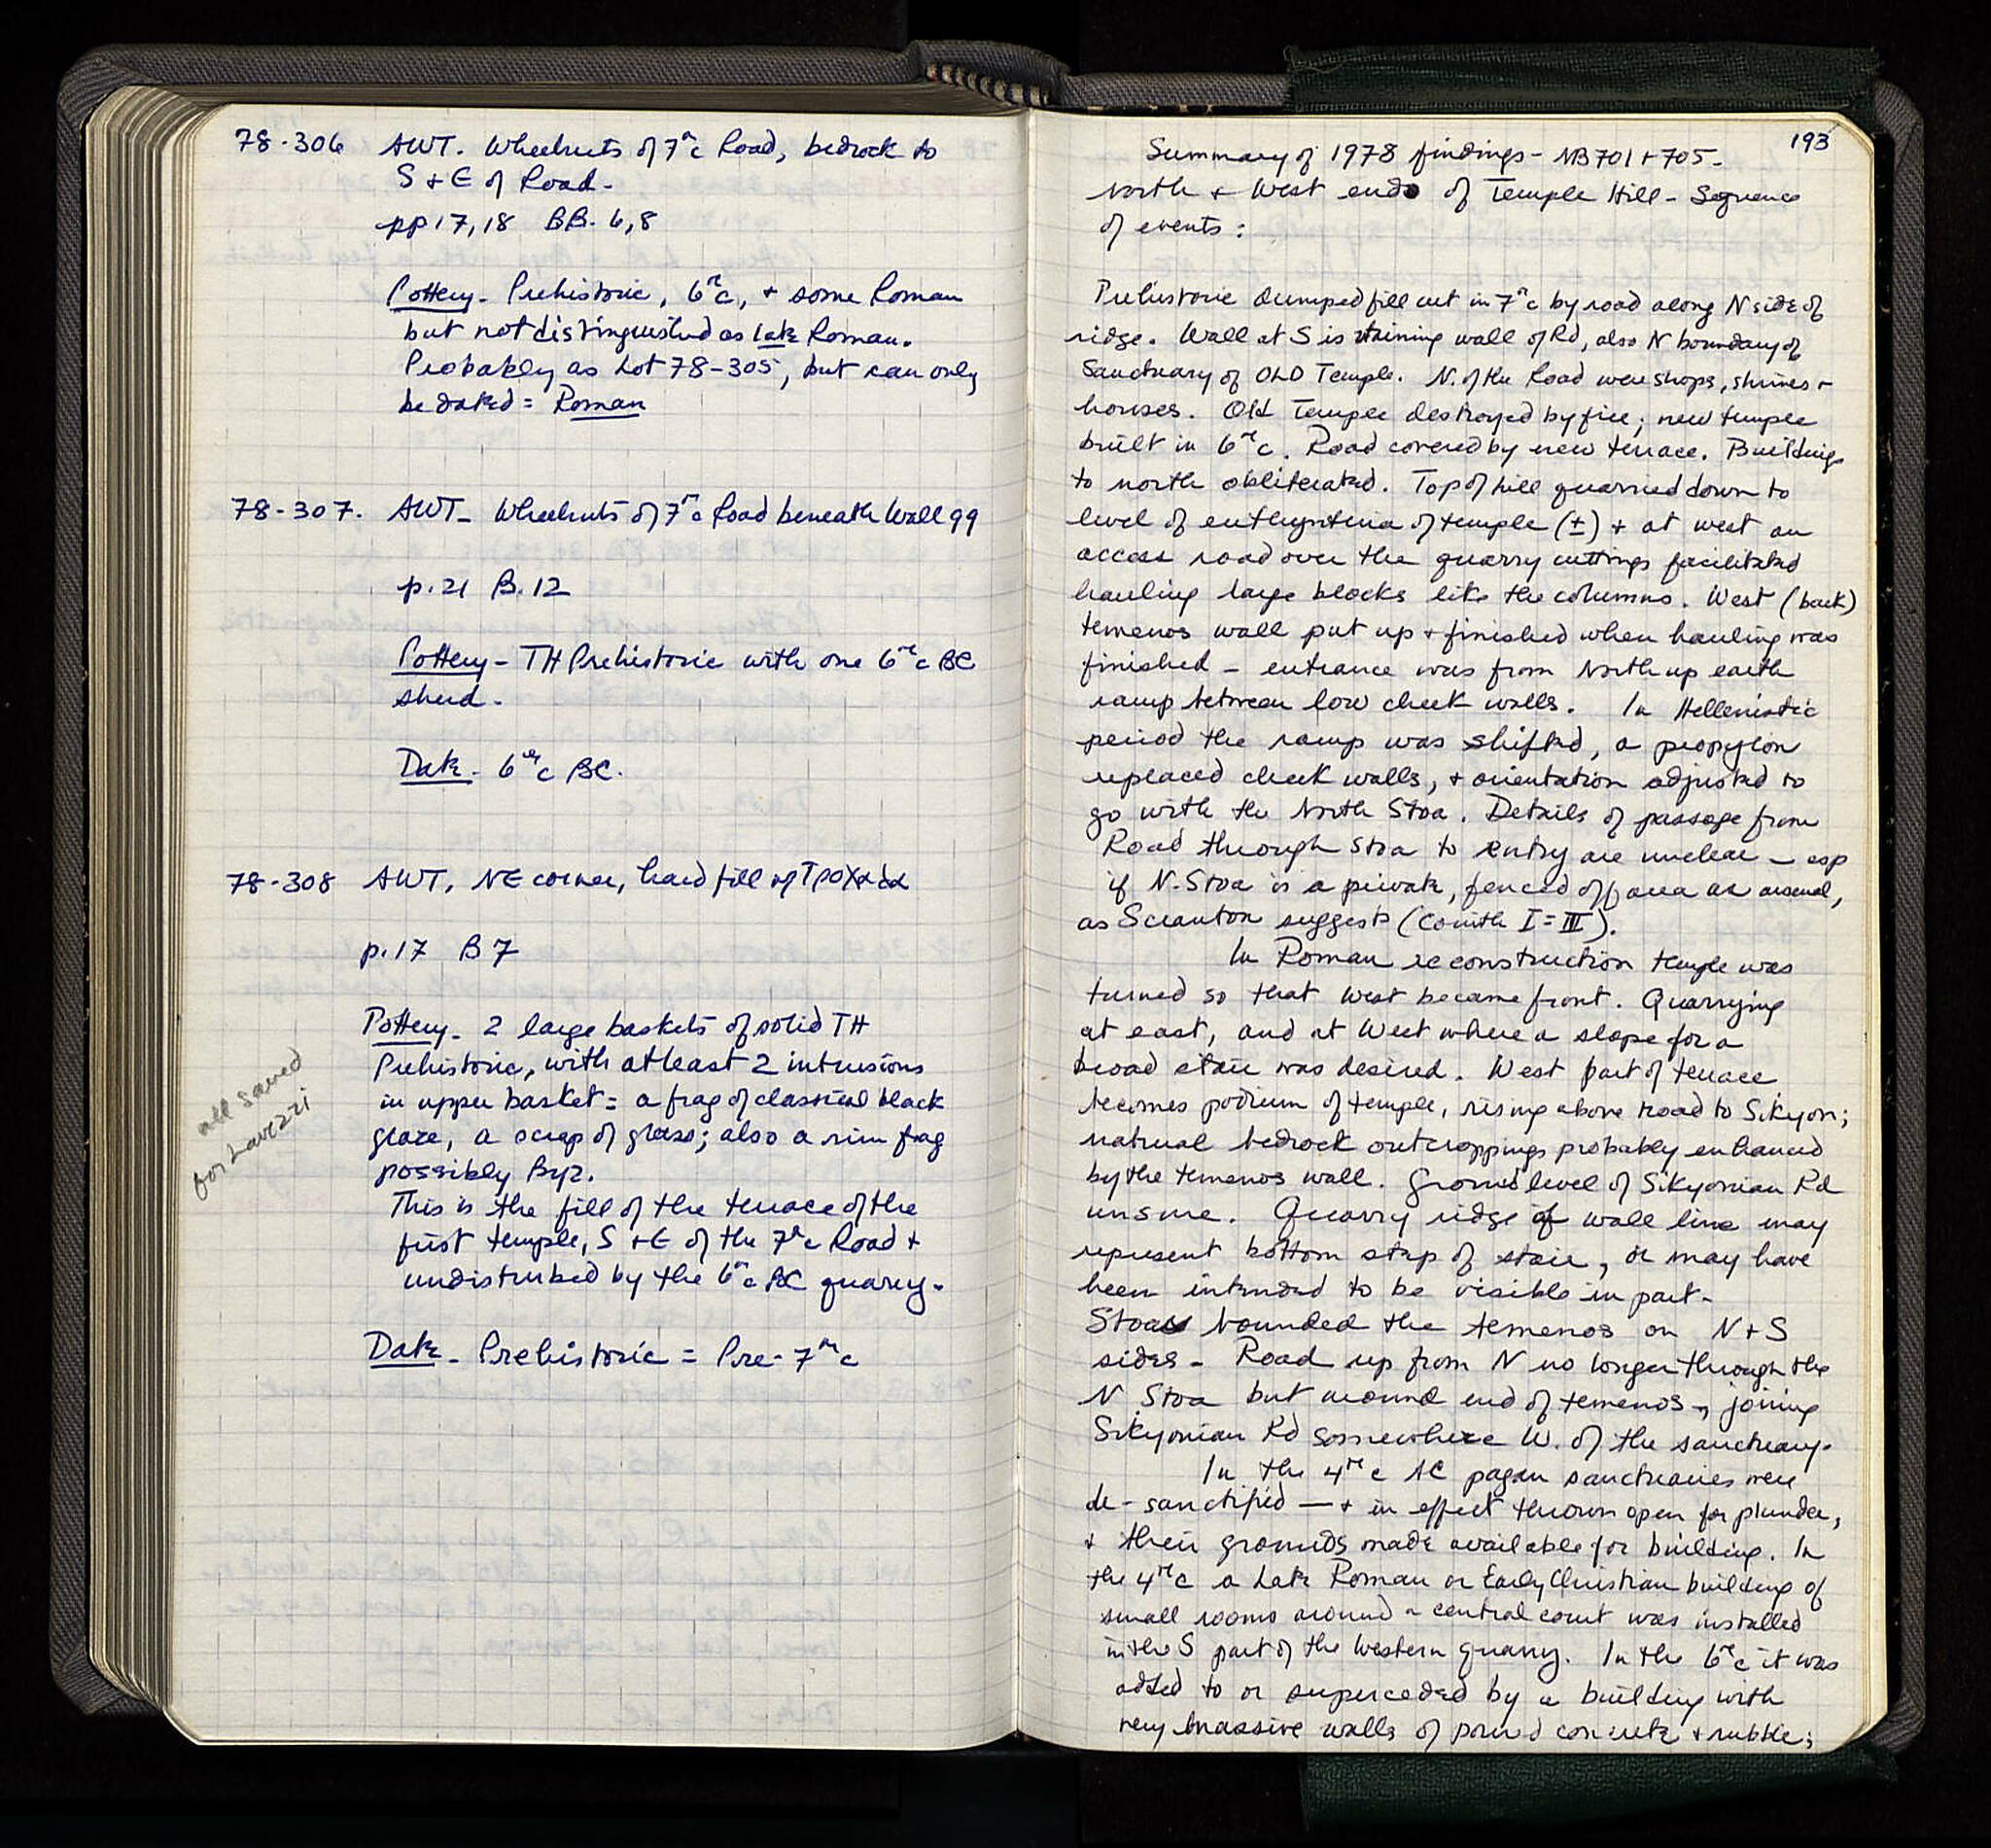 78-306 AWT. Wheelruts of 7th c Road, bedrock to
S + E of Road -
pp 17, 18 BB. 6, 8
Pottery - Prehistoric, 6th c, + some Roman
but not distinguished as late Roman.
Probably as Lot 78-305, but can only
be dated = Roman
78-307. AWT - Wheelruts of 7th c Road beneath Wall 99
p. 21 B. 12
Pottery - TH Prehistoric with one 6th c BC
sherd -
Date - 6th c BC.
78-308 AWT, NE corner, hard fill w/
p. 17 B 7
Pottery - 2 large baskets of solid TH
Prehistoric, with at least 2 intrusions
in upper basket = a frag of classical black
glaze, a scrap of glass; also a rim frag
possibly Byz.
This is the fill of the terrace of the
first temple, S + E of the 7th c Road +
undisturbed by the 6th c BC quarry.
Date - Prehistoric = Pre-7th c
all saved
for Lavezzi
193
Summary of 1978 findings - NB 701 + 705 -
North + West ends of Temple Hill - Sequence
of events :
Prehistoric dumped fill cut in 7th c by road along N side of
ridge. Wall at S is retaining wall of Rd, also N boundary of
Sanctuary of OLD Temple. N. of the Road were shops, shrines +
houses. Old Temple destroyed by fire; new temple
built in 6th c. Road covered by new terrace. Buildings
to north obliterated. Top of hill quarried down to
level of euthynteria of temple (±) + at west an
access road over the quarry cuttings facilitated
hauling large blocks like the columns. West (back)
temenos wall put up + finished when hauling was
finished - entrance was from North up earth
ramp between low cheek walls. In Hellenistic
period the ramp was shifted, a propylon
replaced cheek walls, + orientation adjusted to
go with the North Stoa. Details of passage from
Road through Stoa to entry are unclear - esp
if N. Stoa is a private, fenced off area as arsenal,
as Scranton suggests (Corinth I = III).
In Roman reconstruction temple was
turned so that West became front. Quarrying
at east, and at West where a slope for a
broad stair was desired. West part of terrace
becomes podium of temple, rising above road to Sikyon;
natural bedrock outcroppings probably enhanced
by the temenos wall. Ground level of Sikyonian Rd
unsure. Quarry ridge of wall line may
represent bottom step of stair, or may have
been intended to be visible in part -
Stoas bounded the temenos on N + S
sides - Road up from N no longer through the
N Stoa but around end of temenos, joining
Sikyonian Rd somewhere W. of the sanctuary.
In the 4th c AC pagan sanctuaries were
de-sanctified — + in effect thrown open for plunder,
+ their grounds made available for building. In
the 4th c a Late Roman or Early Christian building of
small rooms around a central court was installed
in the S part of the Western quarry. In the 6th c it was
added to or superceded by a building with
very massive walls of poured concrete + rubble;